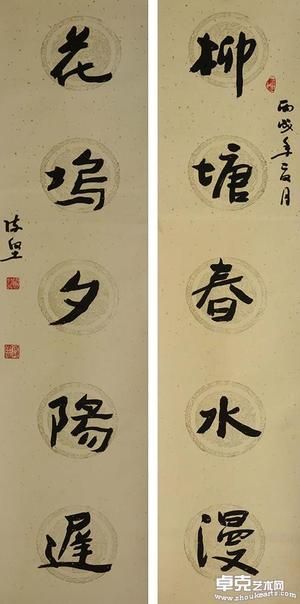 柳塘春水漫
丙戌年夏月
花坞夕陽遲
卓克艺术网
www.zhuokearts.com